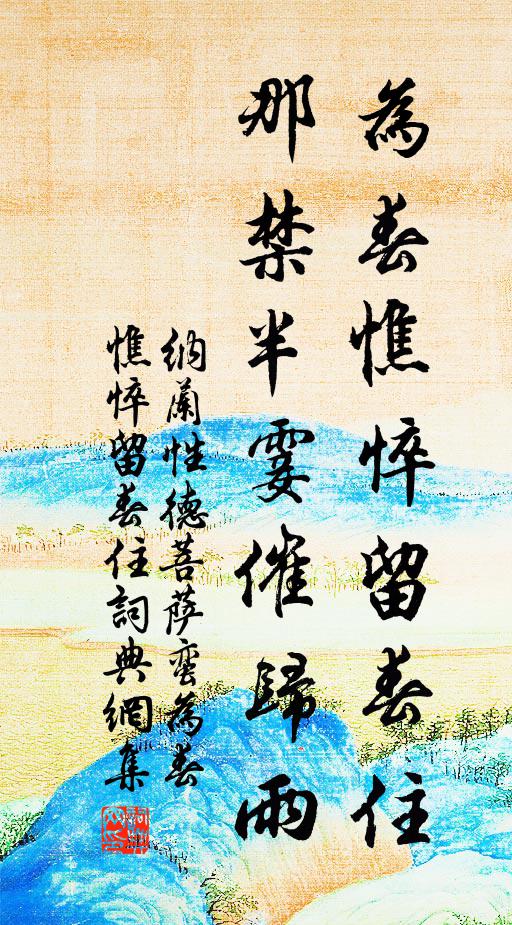 為春憔悴留春住
那禁半霎催歸雨
納蘭性德菩薩蠻為春
憔悴留春住詞典網集